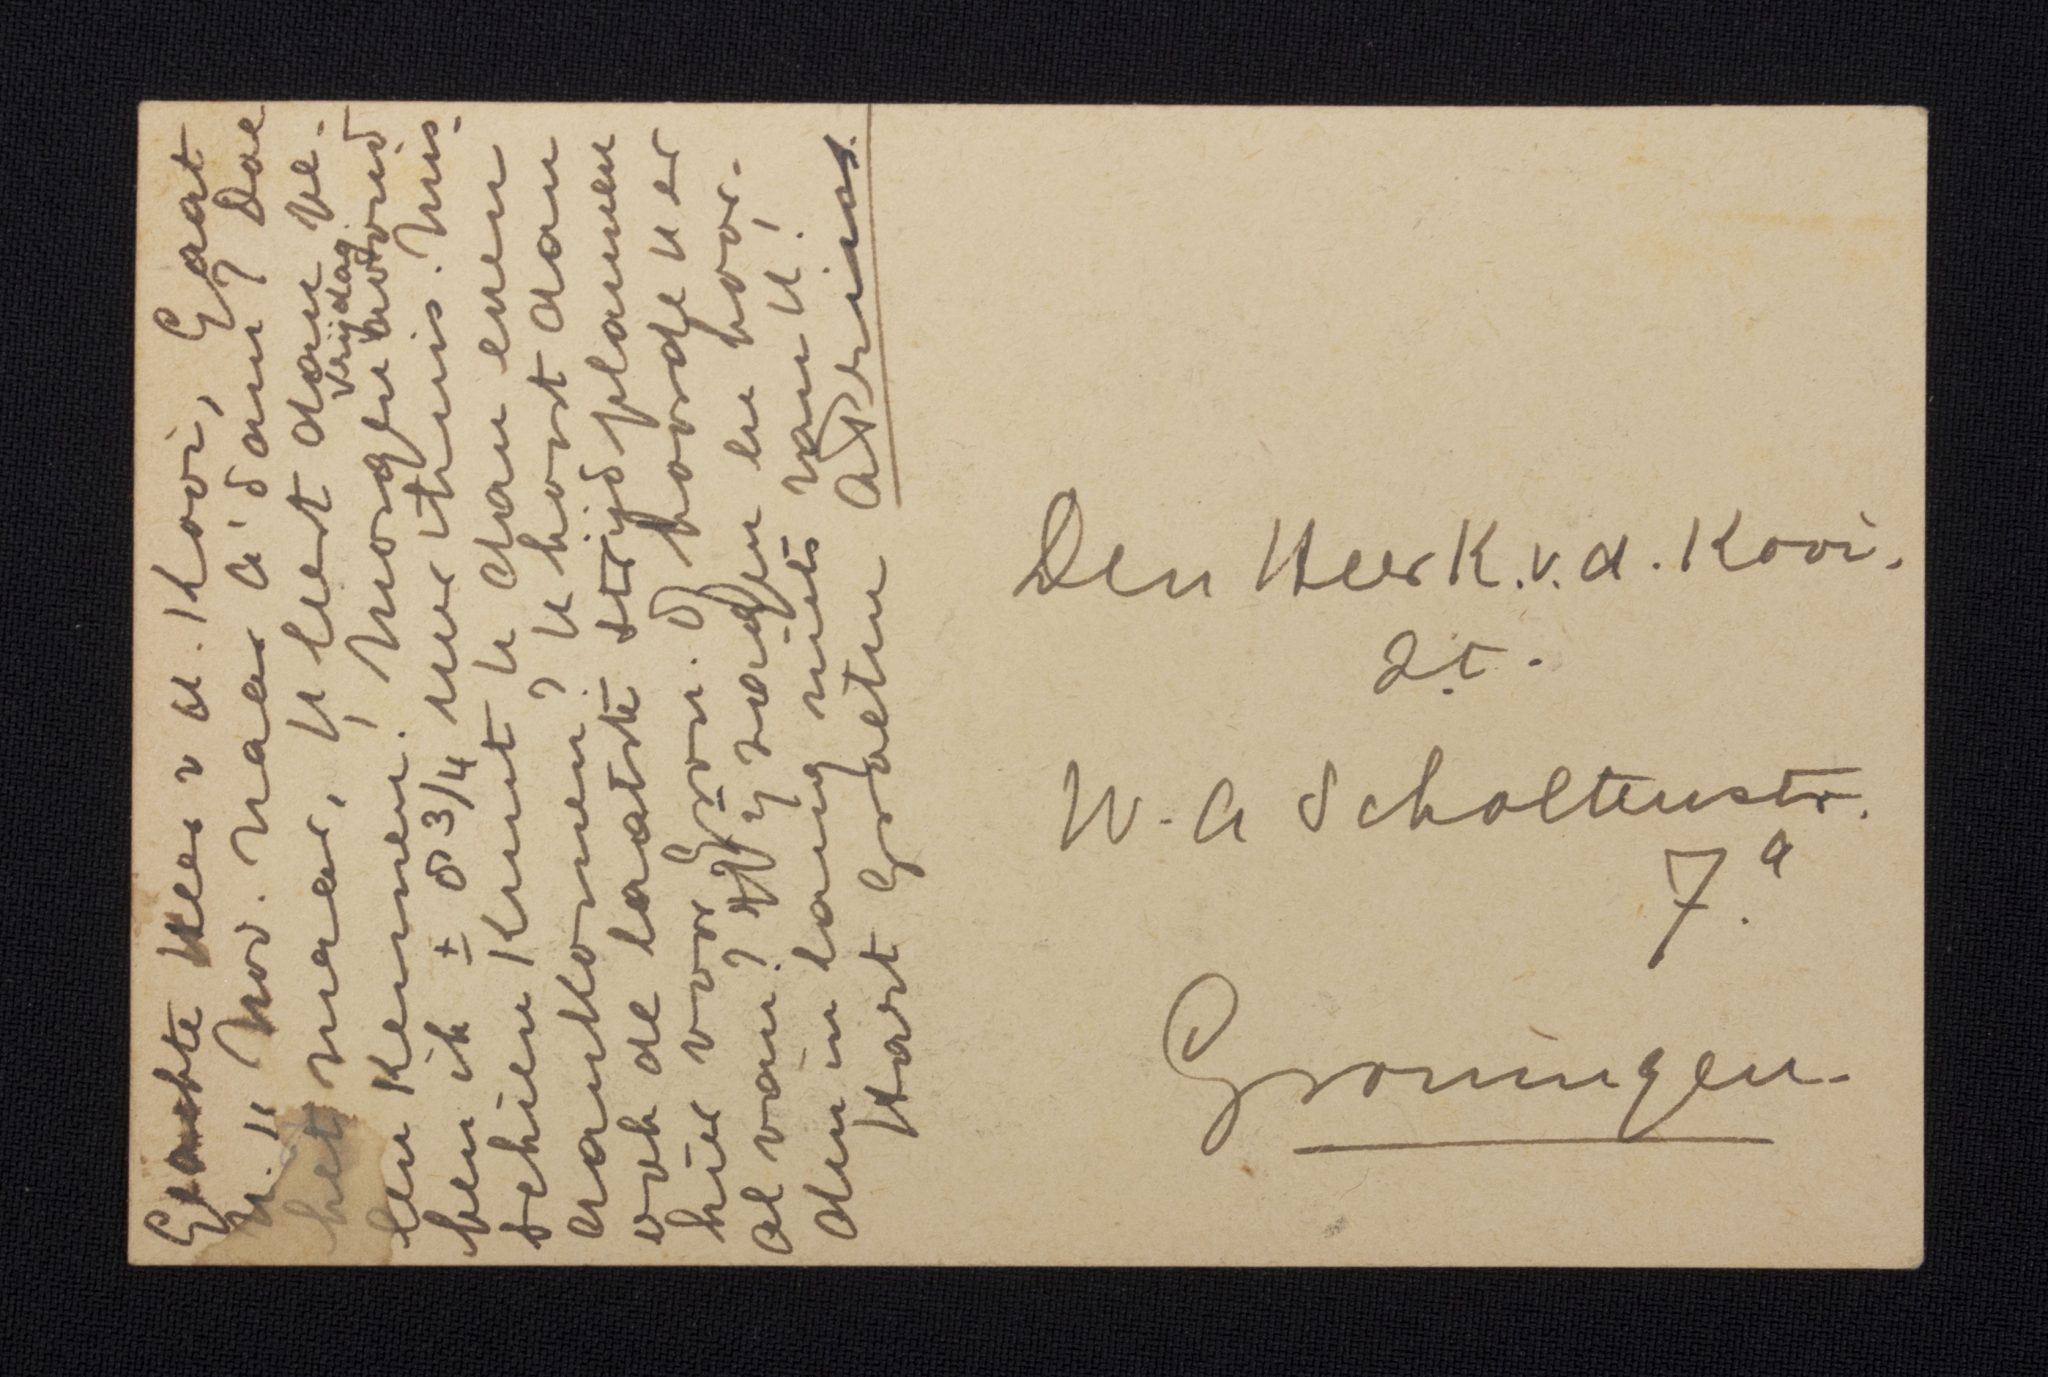 Geachte Heer v d. Kooi, Gaat
U 11 Nov. naar A'dam? Doe
het maar, U leert dan ve-
len kennen. Vrijdag Morgen avond
ben ik ± 8 3/4 uur thuis. Mis-
schien kunt U dan even
aankomen? U hoort dan
ook de laatste strijdplannen
hier voor Gron. Of hoorde U er
al van? Wij zagen en hoor-
den in lang niets van U!
Hart Groeten APrins.
Den Heer K. v. d. Kooi.
Z.t.
W. A Scholtenstr.
7.a
Groningen.